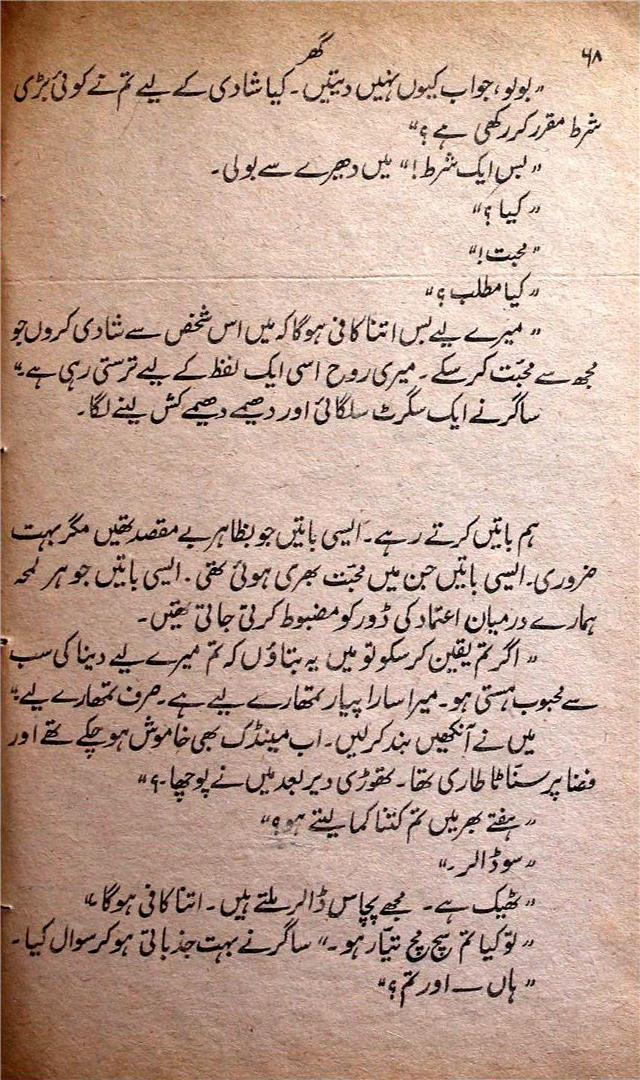 ۶۸
گھر
”بولو، جواب کیوں نہیں دیتیں۔ کیا شادی کے لیے تم نے کوئی بڑی
شرط مقرر کر رکھی ہے؟“
”بس ایک شرط!“ میں دھیرے سے بولی۔
”کیا؟“
”محبت!“
”کیا مطلب؟“
”میرے لیے بس اتنا کافی ہوگا کہ میں اس شخص سے شادی کروں جو
مجھ سے محبّت کر سکے۔ میری روح اسی ایک لفظ کے لیے ترستی رہی ہے۔“
ساگر نے ایک سگرٹ سلگائی اور دھیمے دھیمے کش لینے لگا۔
ہم باتیں کرتے رہے۔ ایسی باتیں جو بظاہر بے مقصد تھیں مگر بہت
ضروری۔ ایسی باتیں جن میں محبّت بھری ہوئی تھی۔ ایسی باتیں جو ہر لمحہ
ہمارے درمیان اعتماد کی ڈور کو مضبوط کرتی جاتی تھیں۔
”اگر تم یقین کر سکو تو میں یہ بتاؤں کہ تم میرے لیے دینا کی سب
سے محبوب ہستی ہو۔ میرا سارا پیار تمھارے لیے ہے۔ صرف تمھارے لیے۔“
میں نے آنکھیں بند کر لیں۔ اب مینڈک بھی خاموش ہو چکے تھے اور
فضا پر سنّاٹا طاری تھا۔ تھوڑی دیر بعد میں نے پوچھا۔؟“
”ہفتے بھر میں تم کتنا کما لیتے ہو؟“
”سو ڈالر۔“
”ٹھیک ہے۔ مجھے پچاس ڈالر ملتے ہیں۔ اتنا کافی ہوگا۔“
”تو کیا تم سچ مچ تیّار ہو۔“ ساگر نے بہت جذباتی ہو کر سوال کیا۔
”ہاں — اور تم؟“